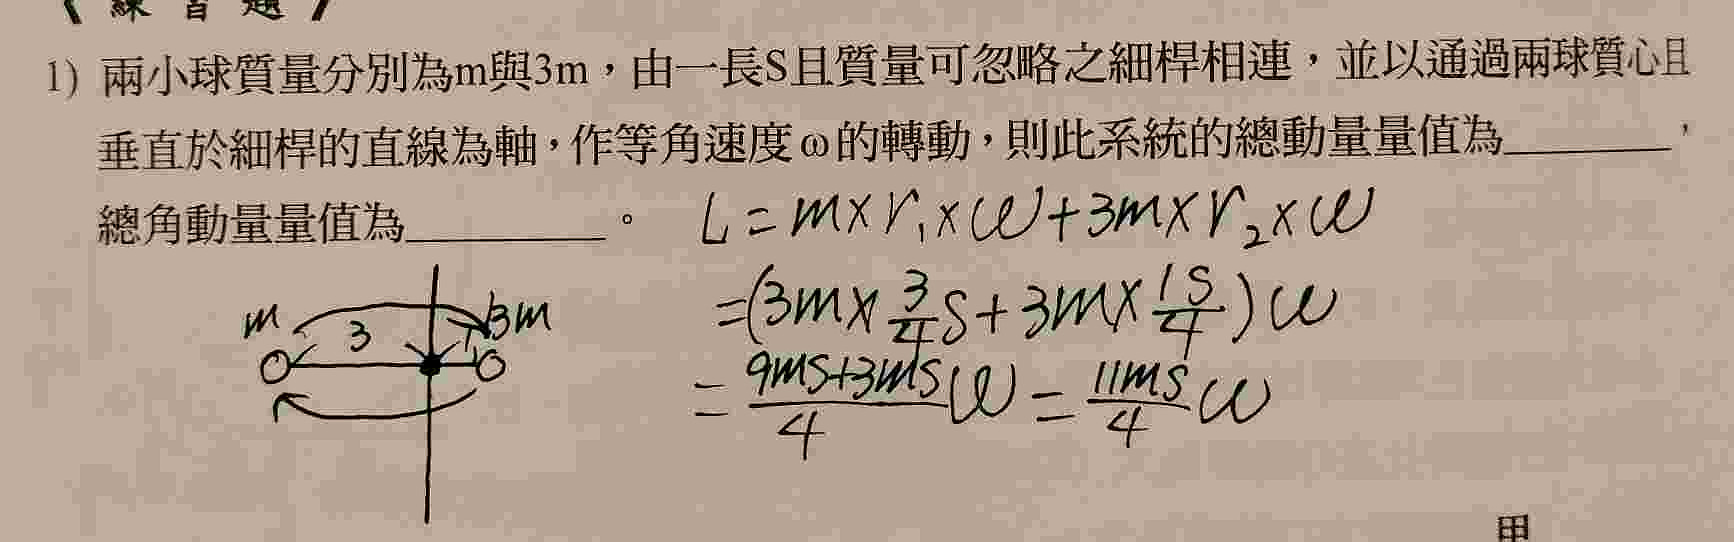 《練習題》
1) 兩小球質量分別為m與3m，由一長S且質量可忽略之細桿相連，並以通過兩球質心且
垂直於細桿的直線為軸，作等角速度ω的轉動，則此系統的總動量量值為________，
總角動量量值為________。
L = m×r₁×ω+3m×r₂×ω
=(3m×3/4 S+3m×1S/4)ω
= 9mS+3mS/4 ω = 11mS/4 ω
m 3 1 3m
甲